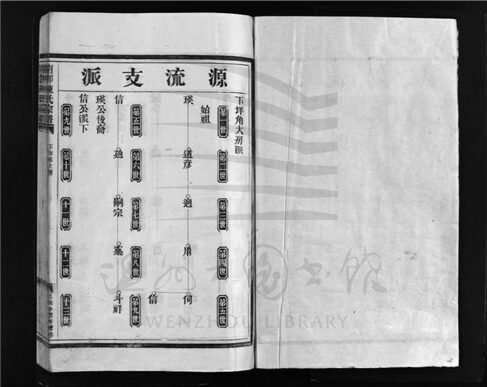 源流支派
下垟角大房派
第一世
第二世
第三世
第四世
第五世
始祖
瑛
道彦
迥
用
伺
信
第五世
第六世
第七世
第八世
第九世
信
嗣宗
斗祥
瑛公後裔
信公派下
第九世
第十世
十一世
十二世
十三世
WENZHOU LIBRARY